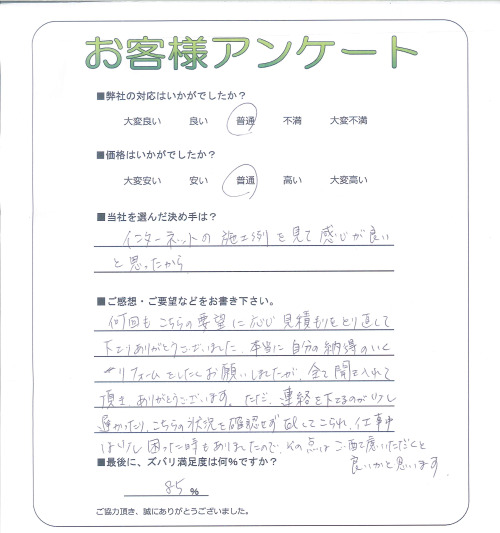 お客様アンケート
■弊社の対応はいかがでしたか？
大変良い　良い　普通　不満　大変不満
■価格はいかがでしたか？
大変安い　安い　普通　高い　大変高い
■当社を選んだ決め手は？
インターネットの施工例を見て感じが良い
と思ったから
■ご感想・ご要望などをお書き下さい。
何回もこちらの要望に応じ見積もりをとり直して
下さりありがとうございました。本当に自分の納得のいく
リフォームをしたくお願いしましたが、全て聞き入れて
頂き ありがとうございます。ただ、連絡を下さるのが少し
遅かったり、こちらの状況を確認せず してこられ、仕事中
は少し困った時もありましたので、その点はご配慮いただくと
良いかと思います。
■最後に、ズバリ満足度は何％ですか？
85 %
ご協力頂き、誠にありがとうございました。